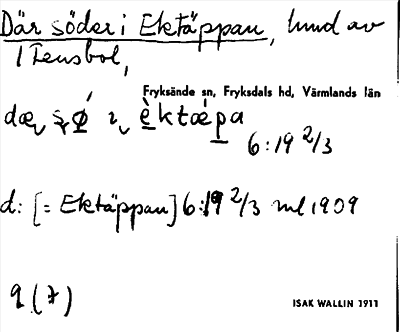 Där söder i Ektäppan, hund av
1 Stensbol,
Fryksände sn, Fryksdals hd, Värmlands län
dæ sø ı èktǽpa
6:19 2/3
d: [= Ektäppan] 6:19 2/3 ml 1909
q (7)
ISAK WALLIN 1911